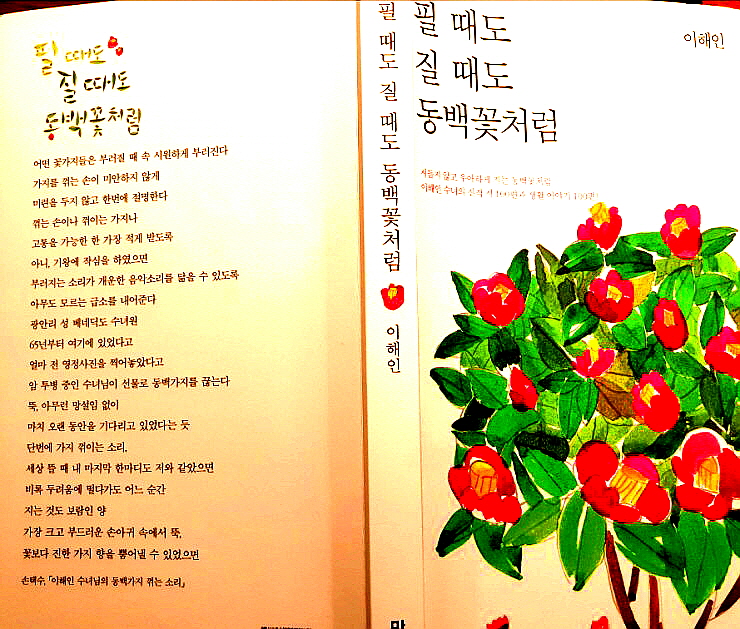 필 때도
질 때도
동백꽃처럼
어떤 꽃가지들은 부러질 때 속 시원하게 부러진다
가지를 꺾는 손이 미안하지 않게
미련을 두지 않고 한번에 절명한다
꺾는 손이나 꺾이는 가지나
고통을 가능한 한 가장 적게 받도록
아니, 기왕에 작심을 하였으면
부러지는 소리가 개운한 음악소리를 닮을 수 있도록
아무도 모르는 급소를 내어준다
광안리 성 베네딕도 수녀원
65년부터 여기에 있었다고
얼마 전 영정사진을 찍어놓았다고
암 투병 중인 수녀님이 선물로 동백가지를 끊는다
뚝, 아무런 망설임 없이
마치 오랜 동안을 기다리고 있었다는 듯
단번에 가지 꺾이는 소리,
세상 뜰 때 내 마지막 한마디도 저와 같았으면
비록 두려움에 떨다가도 어느 순간
지는 것도 보람인 양
가장 크고 부드러운 손아귀 속에서 뚝,
꽃보다 진한 가지 향을 뿜어낼 수 있었으면
손택수, 「이해인 수녀님의 동백가지 꺾는 소리」
필 때도 질 때도 동백꽃처럼
이해인
필 때도
질 때도
동백꽃처럼
이해인
시들지 않고 우아하게 지는 동백꽃처럼
이해인 수녀의 신작 시 100편과 생활 이야기 100편!